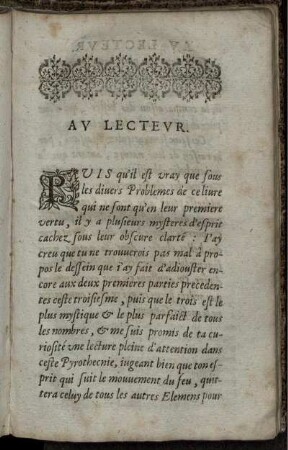 AV LECTEVR.
PVIS qu'il est vray que sous
les divers Problemes de ce livre
qui ne sont qu'en leur premiere
vertu, il y a plusieurs mysteres d'esprit
cachez sous leur obscure clarté : I'ay
creu que tu ne trouverois pas mal à pro-
pos le dessein que i'ay fait d'adiouster en-
core aux deux premieres parties preceden-
tes ceste troisiesme, puis que le trois est le
plus mystique & le plus parfaict de tous
les nombres, & me suis promis de ta cu-
riosité vne lecture pleine d'attention dans
ceste Pyrothecnie, iugeant bien que ton es-
prit qui suit le mouuement du feu, quit-
tera celuy de tous les autres Elemens pour